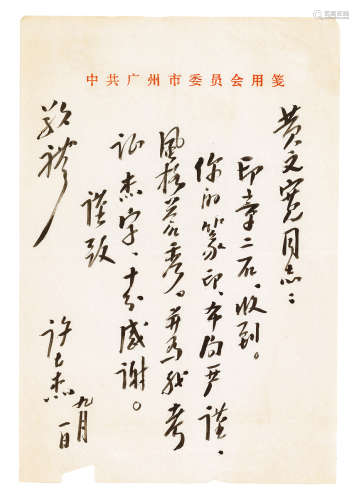 中共广州市委员会用笺
黄文宽同志：
印章二石、收到。
你的篆印、布局严谨、
风格苍秀。并为我考
证杰字、十分感谢。
谨致
敬礼
许士杰 九月
一日